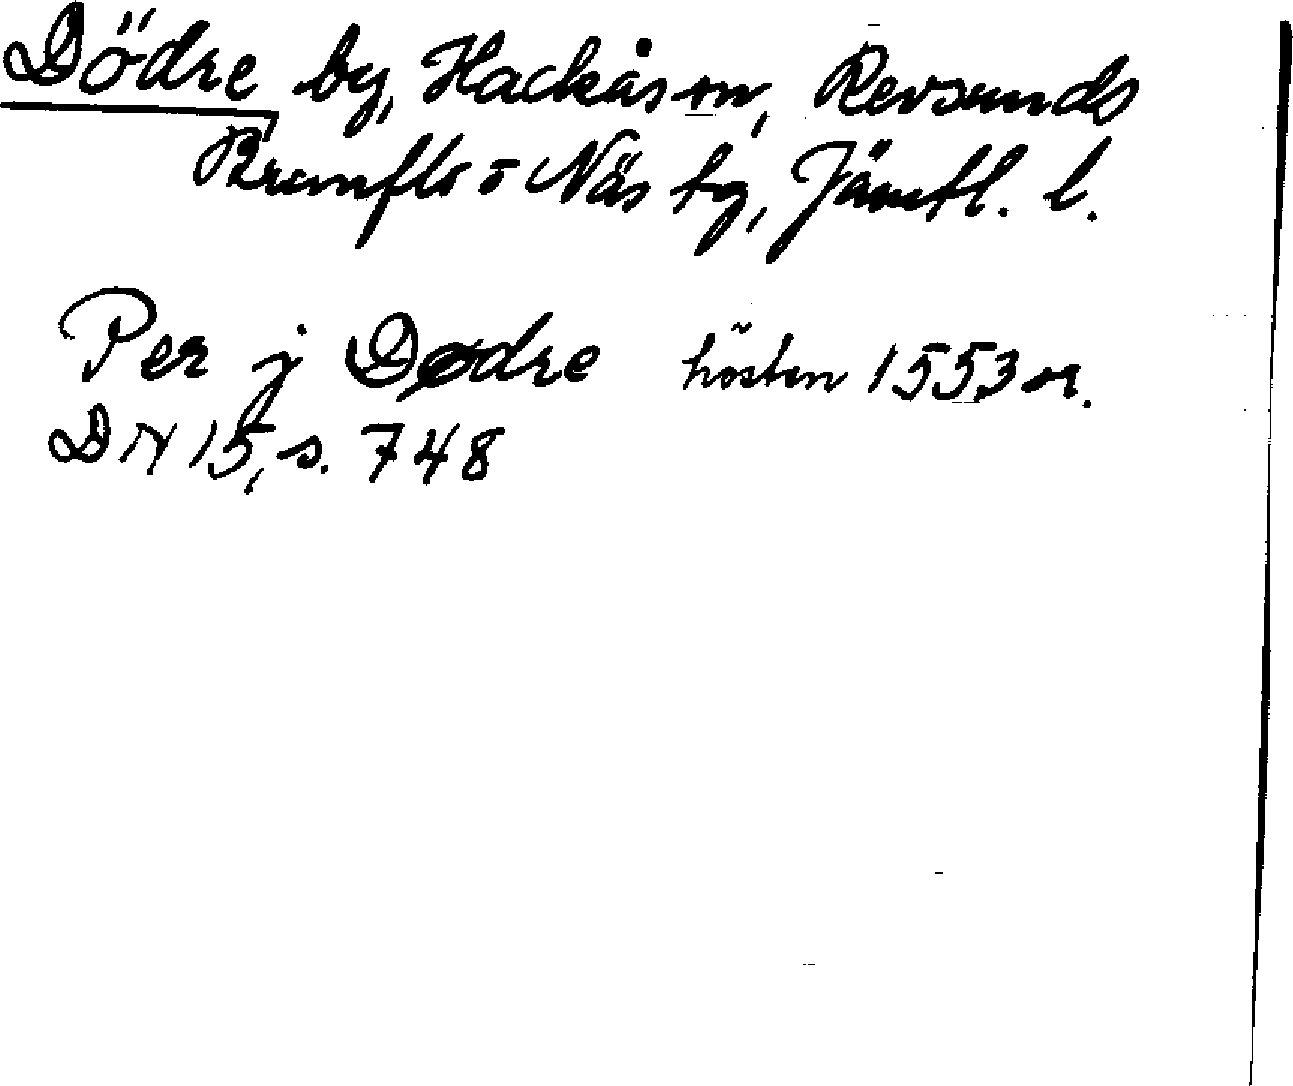 Dödre by, Hackås sn, Revsunds
Brunflo o Näs tg, Jämtl. l.
Per j Dødre hösten 1553 or.
DN 15, s. 748